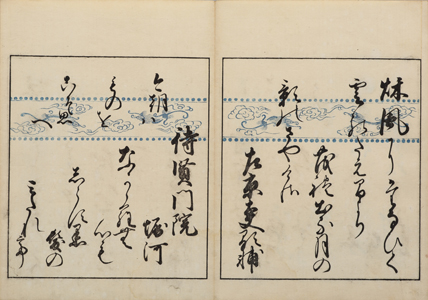 秌風にたなひく
雲のたえ間より
茂れ出月の
影のさやけさ
左京大夫顕輔
待賢門院
堀河
なかからむ心も
しらす黒
髪の
みたれて
今朝は
ものを
こそ思へ